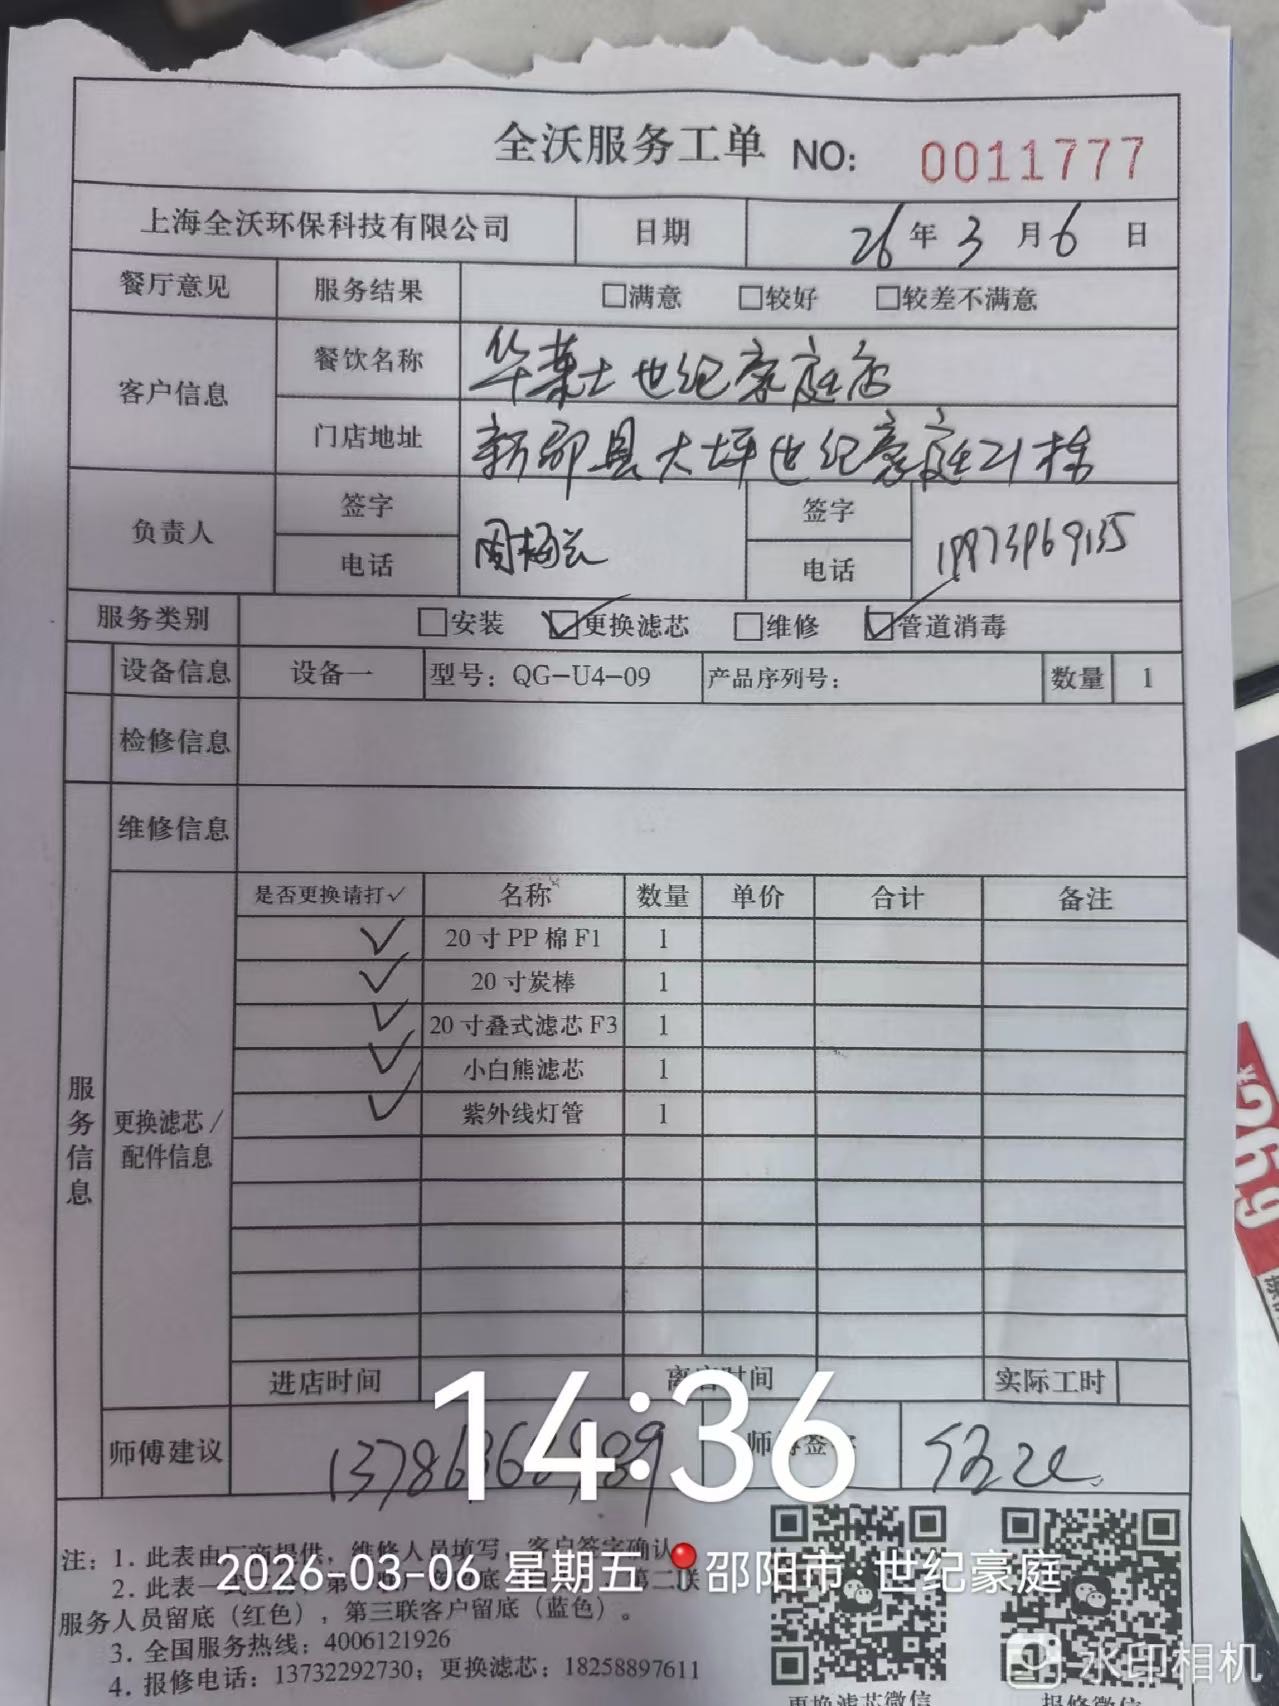 全沃服务工单 NO: 0011777
上海全沃环保科技有限公司 日期 26年3月6日
餐厅意见 服务结果 □满意 □较好 □较差不满意
客户信息 餐饮名称 华莱士世纪豪庭店
门店地址 新邵县大坪世纪豪庭21栋
负责人 签字 周梅兰 签字
电话 电话 19973969135
服务类别 □安装 ☑更换滤芯 □维修 ☑管道消毒
设备信息 设备一 型号: QG-U4-09 产品序列号: 数量 1
检修信息
维修信息
服务信息
更换滤芯/配件信息
是否更换请打✓ 名称 数量 单价 合计 备注
✓ 20寸PP棉F1 1
✓ 20寸炭棒 1
✓ 20寸叠式滤芯F3 1
✓ 小白熊滤芯 1
✓ 紫外线灯管 1
进店时间 离店时间 实际工时
14:36
师傅建议 师傅签字
注: 1. 此表由厂商提供, 维修人员填写, 客户签字确认
2026-03-06 星期五 邵阳市·世纪豪庭
2. 此表一 第二联
服务人员留底(红色), 第三联客户留底(蓝色)。
3. 全国服务热线: 4006121926
4. 报修电话: 13732292730; 更换滤芯: 18258897611
更换滤芯微信 报修微信
水印相机